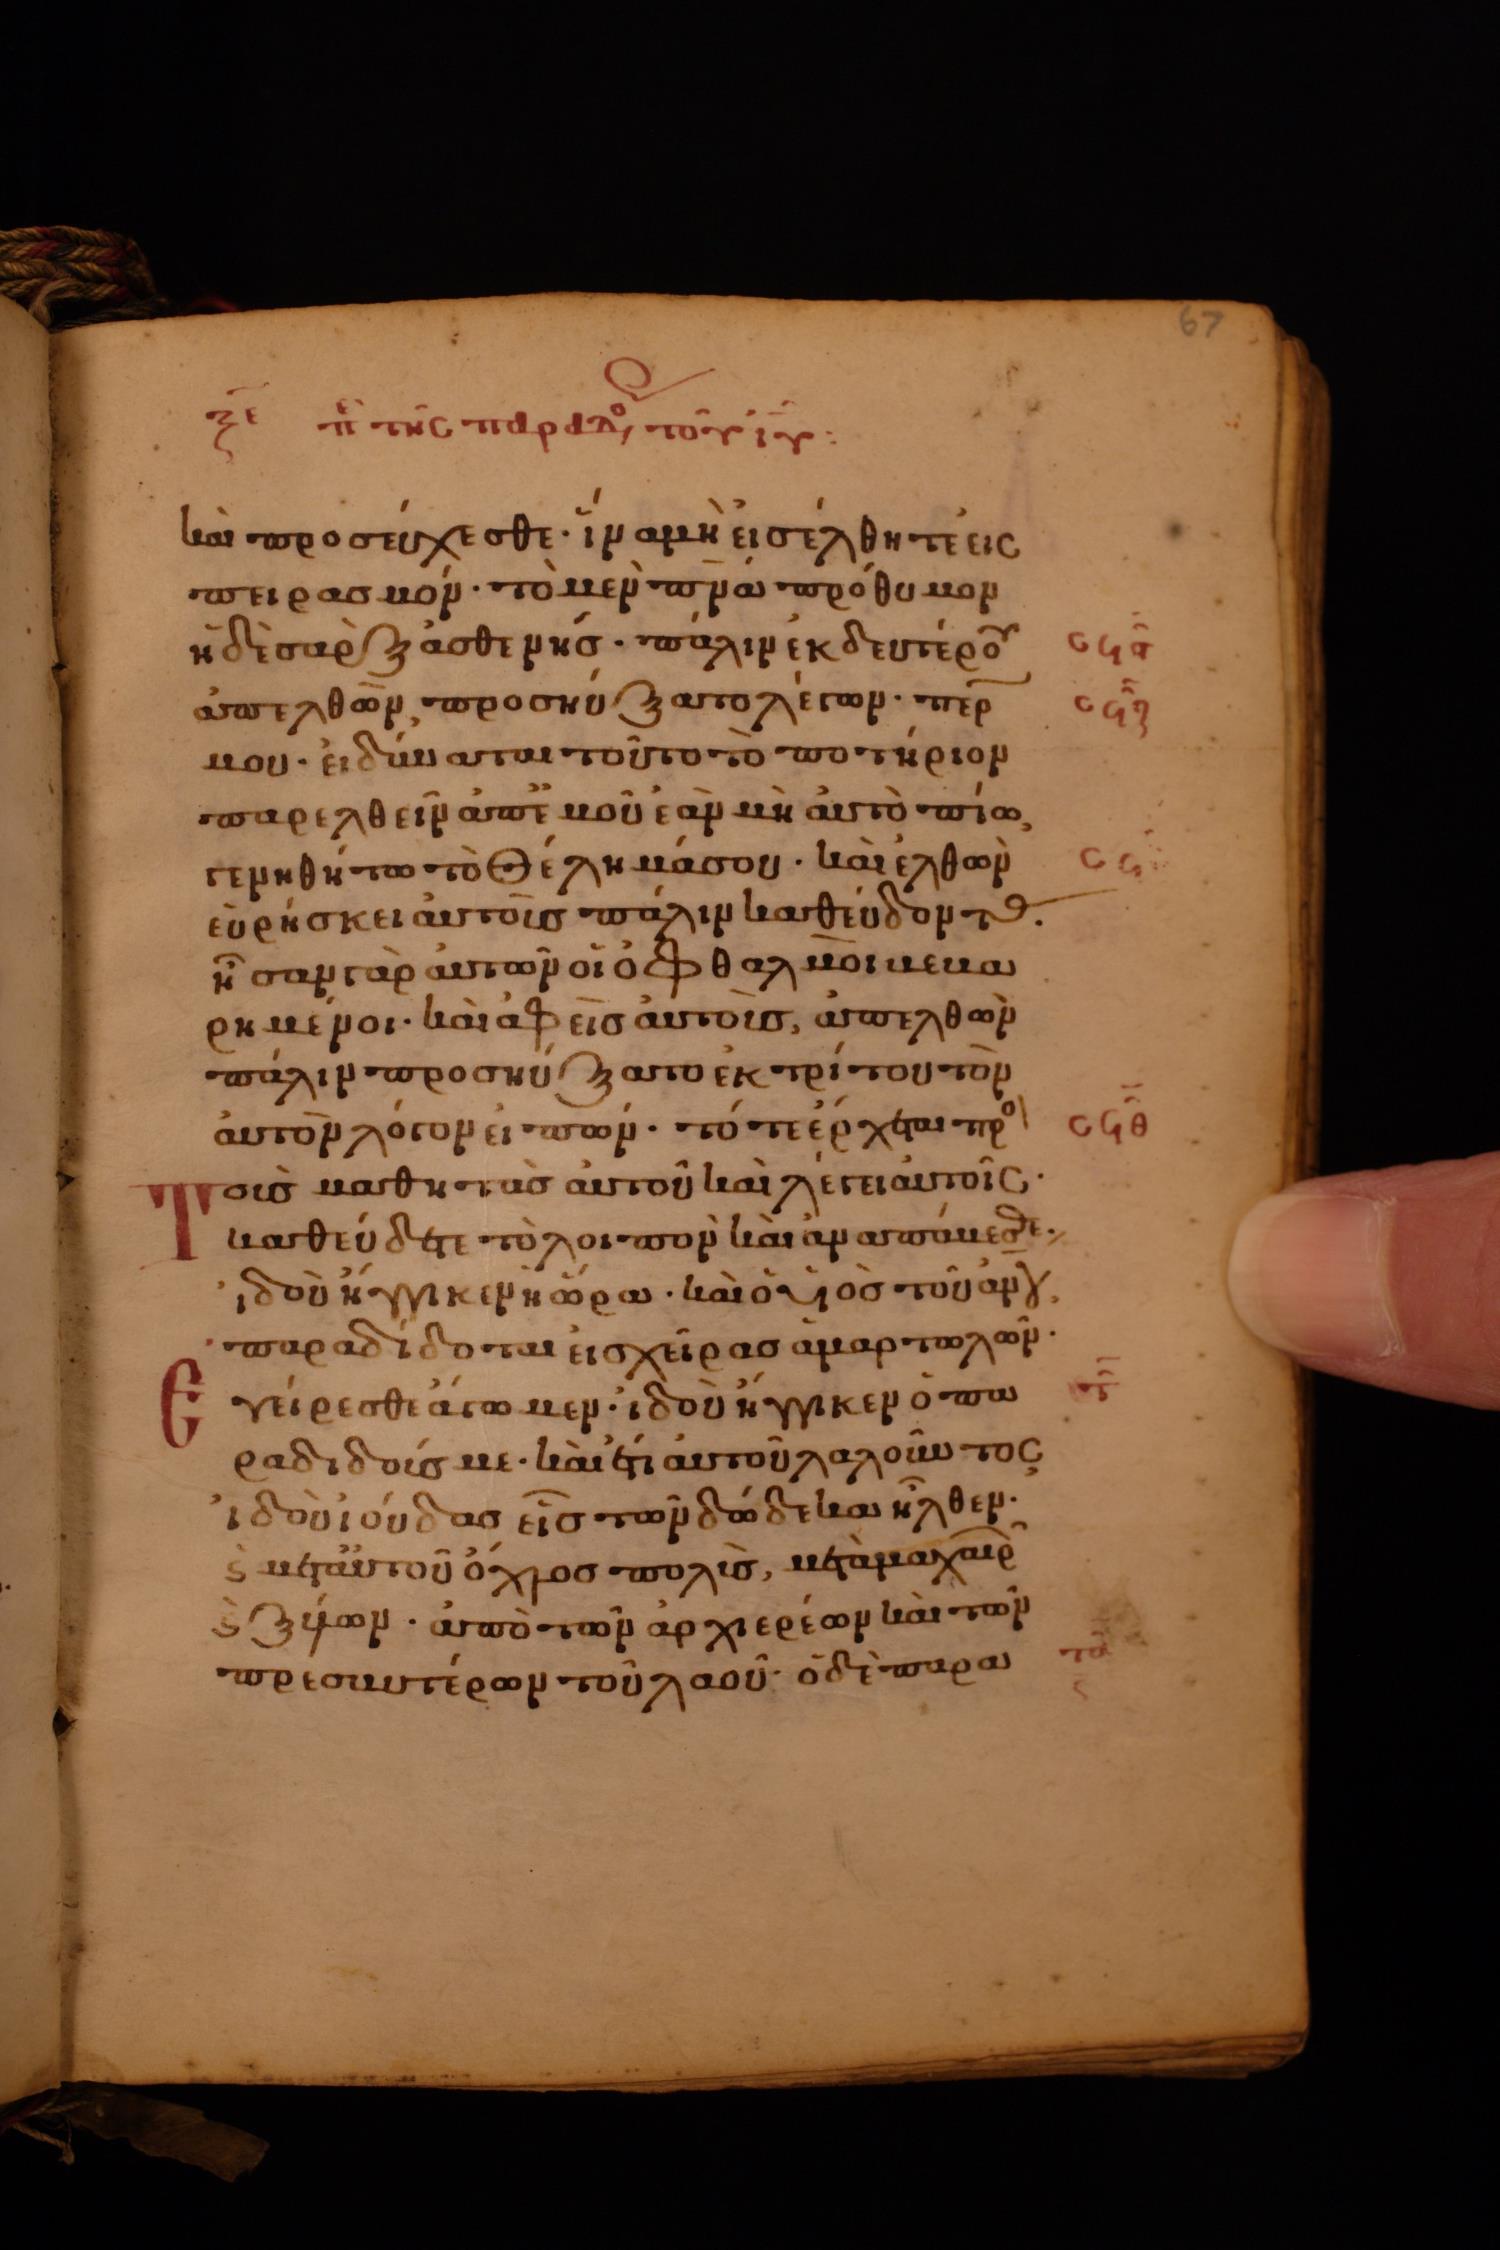 67
ξε πε τῆς παραδο τοῦ ιυ:
καὶ προσεύχεσθε· ἵνα μὴ εἰσέλθητε εἰς
πειρασμόν· τὸ μὲν πνα πρόθυμον
ἡ δὲ σὰρξ ἀσθενής· πάλιν ἐκ δευτέρου
ἀπελθὼν, προσηύξατο λέγων· περ
μου· εἰ δύναται τοῦτο τὸ ποτήριον
παρελθεῖν ἀπ' ἐμοῦ ἐὰν μὴ αὐτὸ πίω,
γενηθήτω τὸ θέλημά σου· καὶ ἐλθὼν
εὑρήσκει αὐτοὺς πάλιν καθεύδοντας·
ἦσαν γὰρ αὐτῶν οἱ ὀφθαλμοὶ βεβα
ρημένοι· καὶ ἀφεὶς αὐτοὺς, ἀπελθὼν
πάλιν προσηύξατο ἐκ τρίτου τὸν
αὐτὸν λόγον εἰπών· τότε ἔρχεται προ
Τοὺς μαθητὰς αὐτοῦ καὶ λέγει αὐτοῖς·
καθεύδετε τὸ λοιπὸν καὶ ἀναπάυεσθε·
ἰδοὺ ἤγγικεν ἡ ὥρα· καὶ ὁ υἱὸς τοῦ ανου,
παραδίδοται εἰς χεῖρας ἁμαρτωλῶν·
Ἐγείρεσθε ἄγωμεν· ἰδοὺ ἤγγικεν ὁ πα
ραδιδούς με· καὶ ἔτι αὐτοῦ λαλοῦντος
ἰδοὺ ἰούδας εἷς τῶν δώδεκα ἦλθεν·
ϛ μετ' αὐτοῦ ὄχλος πολὺς, μετὰ μαχαιρ
ϛ ξύλων· ἀπὸ τῶν ἀρχιερέων καὶ τῶν
πρεσβυτέρων τοῦ λαοῦ· ὁ δὲ παρα
σϟη
σϟθ
τ
τα